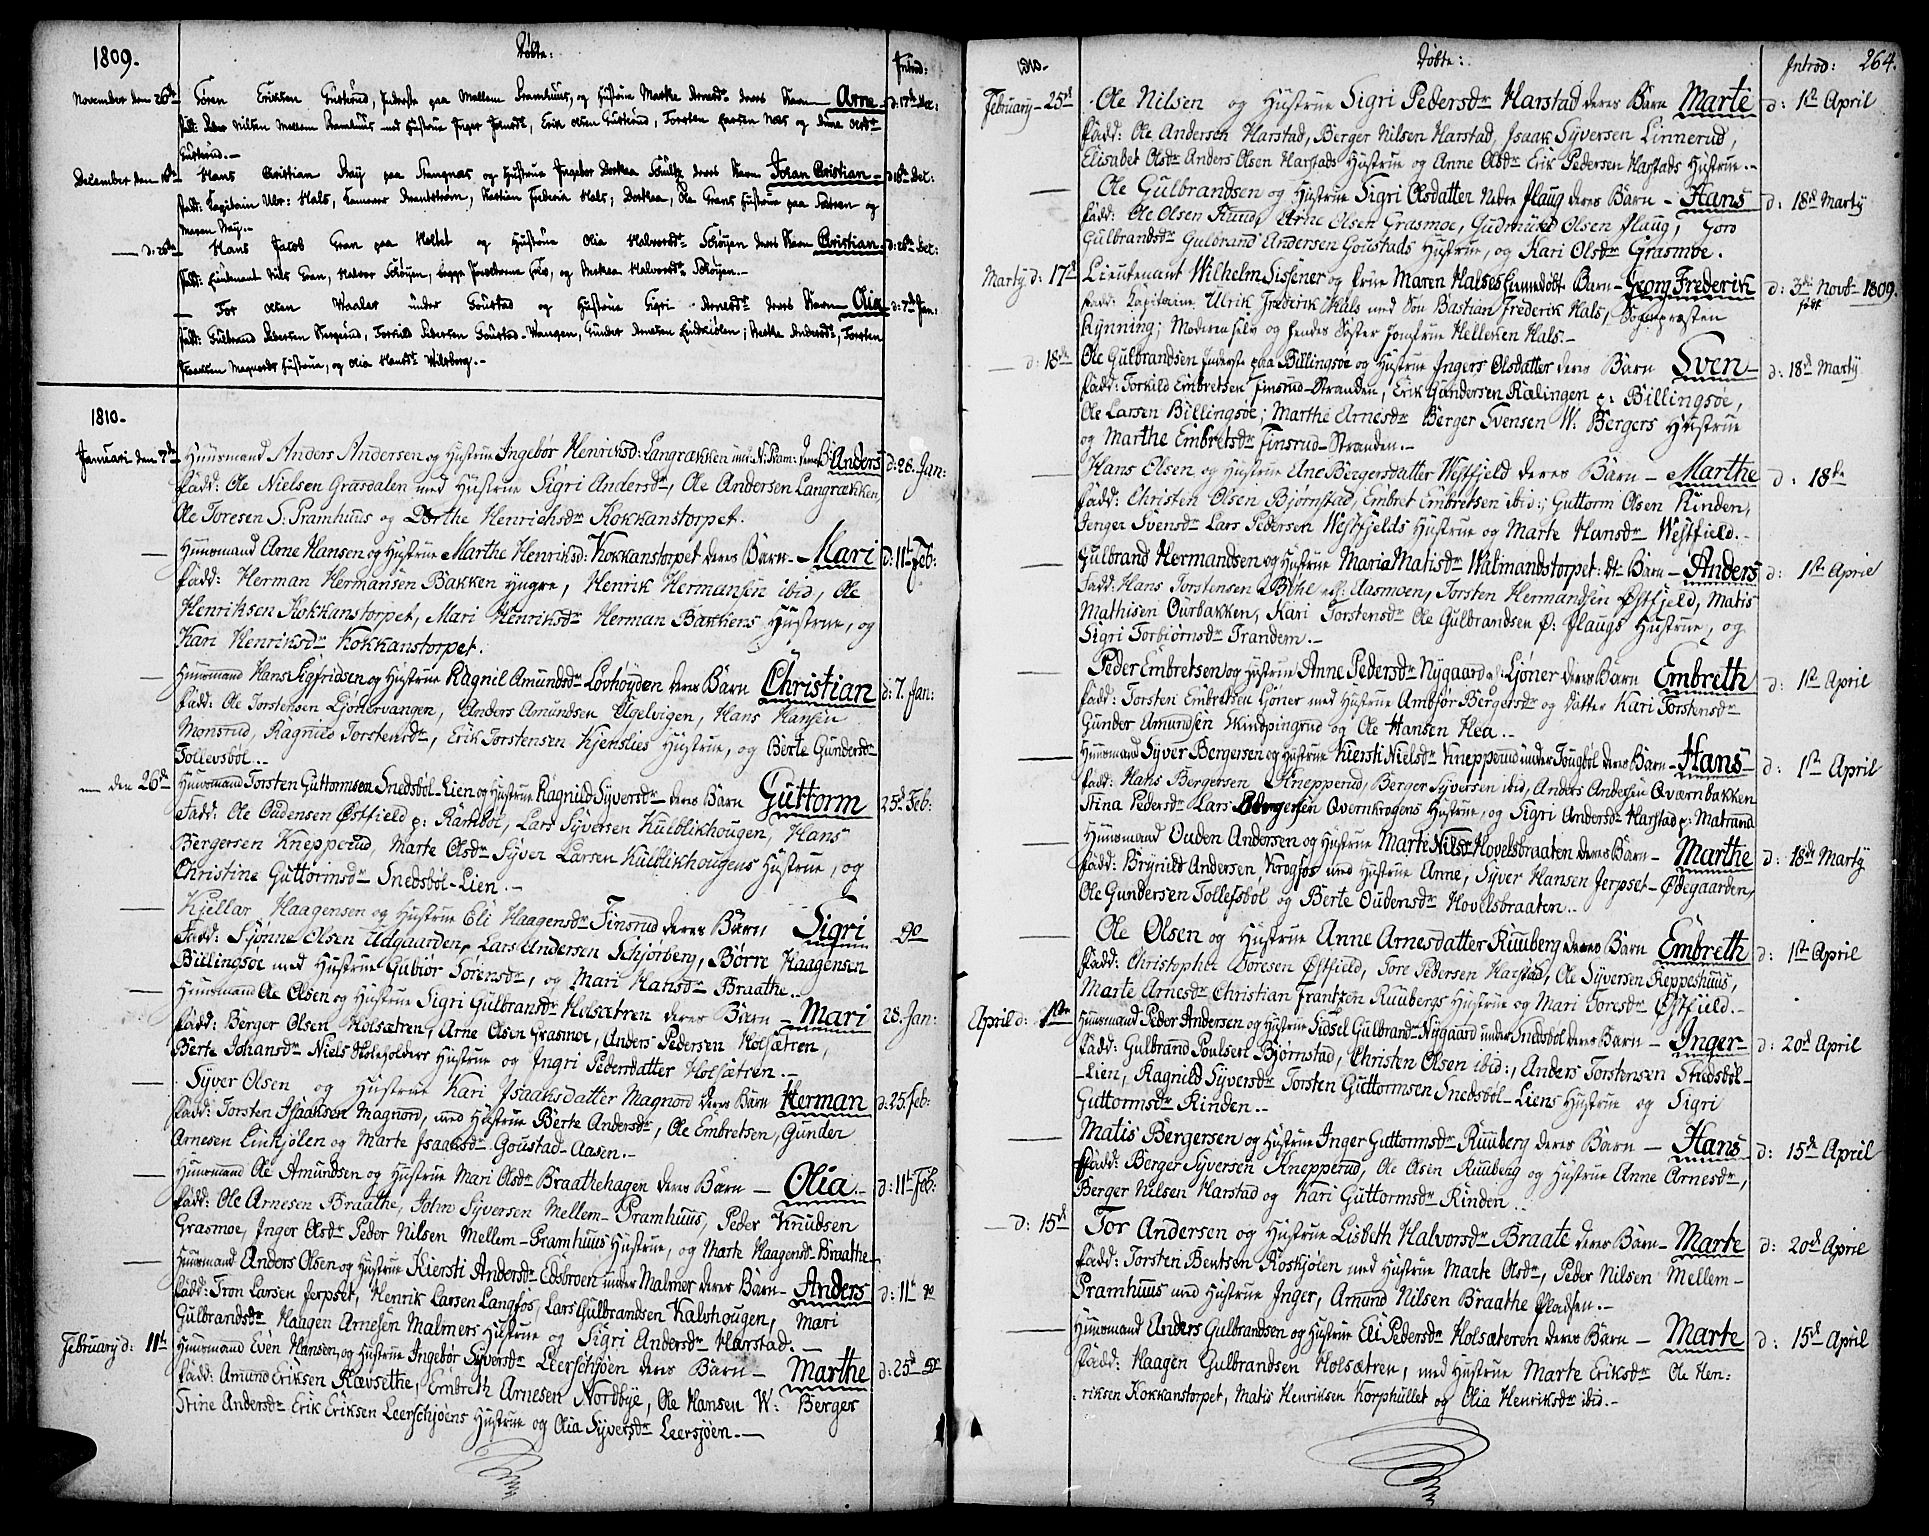 1809.
Döbte:
Introd:
November den 26de Sören Eriksen Gustrud, Inderste paa Mellem Pramhuus, og Hustrue Marthe Arnesdr deres Barn Arne d: 17de Dec:
fadd: Peder Nilsen Mellem Pramhuus med Hustrue Inger Jonsdr, Erik Olsen Gustrud, Torsten Larsen Næs og Anne Olsdr
Gustrud.
December den 10de Hans Christian Ray paa Skangnæs og Hustrue Ingebor Dorthea Schultz deres Barn Johan Christian d 18de Dec:
fadd: Capitain Ulr: Hals, Bastian Frederik Hals; Dorthea, Ole Grans Hustrue paa Sætren og
Maren Ray.
d: 26de Hans Jacob Gran paa Holtet og Hustrue Olia Halvorsdr Schøyen deres Barn Christian d: 26de Dec:
fadd: Lieutenant Nils Gran, Halvor Schøyen, begge Jomfruerne, og Anthea Halvorsdr Schøyen.
Tor Olsen Waaler under Goustad og Hustrue Sigri Arnesdr deres Barn Olia d: 7de Jan:
fadd: Gulbrand Pedersen Skogerud, Torkild Pedersen Goustad-Wangen, Gunder Arnesen Linkiölen; Berthe Andersdr, Torsten
Isaaksen Magnords Hustrue, og Olia Hansdr Wilsberg.
1810.
Januari den 7de Huusmand Anders Andersen og Hustrue Ingebør Henriksd: Langrækken und: N: Pram: deres B: Anders d: 28. Jan:
fadd: Ole Nielsen Grasdalen med Hustrue Sigri Andersdr, Ole Andersen Langrækken,
Ole Toresen S. Pramhuus og Dorthe Henrichsdr Kokkanstorpet.
Huusmand Arne Hansen og Hustrue Marthe Henriksd: Kokkanstorpet deres Barn Mari d: 11te Feb:
fadd: Herman Hermansen Bakken yngre, Henrik Hermansen ibid, Ole
Henriksen Kokkanstorpet, Mari Henriksdr Herman Bakkens Hustrue, og
Kari Henriksdr Kokkanstorpet.
Huusmand Hans Sigfridsen og Hustrue Ragnil Amundsdr Lovhöyden deres Barn Christian d: 7. Jan:
fadd: Ole Torstensen Ljönervangen, Anders Amundsen Ugelvigen, Hans Hansen
Monsrud, Ragnild Torstensdr, Erik Torstensen Kjenslies Hustrue, og Berte Gundersdr
Tollevsböl.
den 26de Huusmand Torsten Guttormsen Snedsböl-Lien og Hustrue Ragnild Syversdr deres Barn Guttorm 25de Feb:
Fadd: Ole Oudensen Østfield p: Ramböl, Lars Syversen Kulblikhougen, Hans
Bergersen Knepperud, Marte Olsdr Syver Larsen Kulblikhougens Hustrue, og
Christine Guttormsdr Snedsböl-Lien.
Kjellar Haagensen og Hustrue Eli Haagensdr Finsrud deres Barn Sigri Do
Fadd: Syönne Olsen Udgaarden, Lars Andersen Schjörberg, Börre Haagensen
Billingsöe med Hustrue Gubiör Sörensdr, og Mari Hansdr Braathe.
Huusmand Ole Olsen og Hustrue Sigri Gulbransdr Holsætren deres Barn Mari 28. Jan:
fadd: Berger Olsen Holsætren, Arne Olsen Grasmoe, Anders Pedersen Holsætren,
Berte Johansdr Niels Holeholders Hustrue og Ingri Pedersdatter Holsætren.
Syver Olsen og Hustrue Kari Isaaksdatter Magnord deres Barn Herman d: 25. Feb:
fadd: Torsten Isaaksen Magnord, med Hustrue Berte Andersdr, Ole Embretsen, Gunder
Arnesen Linkjölen og Marte Isaaksdr Goustad-Aasen.
Huusmand Ole Amundsen og Hustrue Mari Olsdr Braathehagen deres Barn Olia d: 11te Feb:
fadd: Ole Arnesen Braathe, John Syversen Mellem-Pramhuus, Peder Knudsen
Grasmoe, Inger Olsdr Peder Nilsen Mellem-Pramhuus Hustrue, og Marte Haagensdr Braathe
Huusmand Anders Olsen og Hustrue Kiersti Andersdr Edsbroen under Malmer deres Barn Anders d: 11te do
fadd: Tron Larsen Jerpset, Henrik Larsen Langfos, Lars Gulbrandsen Kalshougen, Mari
Gulbrandsdr Haagen Arnesen Malmers Hustrue og Sigri Andersdr Harstad.
February d: 11te Huusmand Even Hansen, og Hustrue Ingebör Syversdr Leerschjöen deres Barn Marthe d: 25de do
fadd: Amund Eriksen Rævsethe, Embreth Arnesen Nordbye, Ole Hansen W: Berger
Stine Andersdr Erik Eriksen Leerschjöens Hustrue og Olia Syversdr Leersjöen.
1810.
Döbte:
Introd: 264.
February 25de Ole Nilsen og Hustrue Sigri Pedersdr Harstad deres Barn Marte d: 1ste April
fadd: Ole Andersen Harstad, Berger Nilsen Harstad, Isaak Syversen Linnerud,
Elisabet Olsdr Anders Olsen Harstads Hustrue og Anne Olsdr Erik Pedersen Harstads Hustrue.
Ole Gulbrandsen og Hustrue Sigri Olsdatter Nedre Plaug deres Barn Hans d: 18de Marty
fadd: Ole Olsen Funde, Arne Olsen Grasmoe, Gudmund Olsen Plaug, Goro
Gulbrandsdr Gulbrand Andersen Goustads Hustrue, og Kari Olsdr Grasmoe.
Marty d: 17de Lieutenant Wilhelm Sissener og Frue Maren Halses hiemedöbt Barn Georg Frederik d: 3die Novbr 1809. født
fadd: Capitaine Ulrik Frederik Hals med Sön Bastian Frederik Hals, Sognepræsten
Rynning; Moderen selv og hendes Söster Jomfrue Hellesen Hals.
d: 18de Ole Gulbrandsen Inderste paa Billingsöe og Hustrue Ingers Olsdatter deres Barn Sven d: 18de Marty
fadd: Torkild Embretsen Finsrud-Stranden, Erik Gundersen Rælingen p: Billingsöe,
Ole Larsen Billingsöe; Marthe Arnesdr Berger Svensen W. Bergers Hustrue
og Marthe Embretsdr Finsrud-Stranden.
Hans Olsen og Hustrue Ane Bergersdatter Westfjeld deres Barn Marthe d: 18de
fadd: Christen Olsen Bjornstad, Embret Embretsen ibid:, Guttorm Olsen Rinden,
Jenger Svensdr Lars Pedersen Westfjelds Hustrue og Marte Hansdr Westfield.
Gulbrand Hermandsen og Hustrue Maria Matisdr Walmandstorpet: dr Barn Anders d: 1ste April
Fadd: Hans Torstensen Böhl Aasmoen, Torsten Hermandsen Østfjeld, Matis
Mathisen Ourbakken, Kari Torstensdr Ole Gulbrandsen Ö: Plaugs Hustrue, og
Sigri Torbiörnsdr Trandem.
Peder Embretsen og Hustrue Anne Pedersdr Nygaard u: Ljöner deres Barn Embreth d: 1ste April
fadd: Torsten Embretsen Ljöner med Hustrue Ambjör Bergersdr og Datter Kari Torstensdr
Gunder Amundsen Skindpingrud og Ole Hansen Hea.
Huusmand Syver Bergersen og Hustrue Kiersti Nielsdr Knepperud under Tougböl deres Barn Hans d: 1ste April
fadd: Hans Bergersen Knepperud, Berger Syversen ibid, Anders Andersen Qværnbakken
Stina Pedersdr Lars Bergersen Overnkrogens Hustrue, og Sigri Andersdr Harstad p: Matrand
Huusmand Ouden Andersen og Hustrue Marte Nilsdr Hovelsbraaten deres Barn Marthe d: 18de Marty
fadd: Brynild Andersen Krogfos med Hustrue Anne, Syver Hansen Jerpset-Ødegaarden,
Ole Gundersen Tollefsböl og Berte Oudensdr Hovelsbraaten.
Ole Olsen og Hustrue Anne Arnesdatter Ruuberg deres Barn Embreth d: 1ste April
fadd: Christopher Toresen Østfield, Tore Pedersen Harstad, Ole Syversen Keppeshuus,
Marte Arnesdr Christian Frantzen Ruubergs Hustrue og Mari Toresdr Østfjeld.
April d: 1ste Huusmand Peder Andersen og Hustrue Sidsel Gulbrandsdr Nygaard under Snedsböl deres Barn Inger d: 20de April
fadd: Gulbrand Poulsen Björnstad, Christen Olsen ibid:, Anders Torstensen Snedsböl-
-Lien, Ragnild Syversdr Torsten Guttormsen Snedsböl-Liens Hustrue og Sigri
Guttormsdr Rinden.
Matis Bergersen og Hustrue Inger Guttormsdr Ruuberg deres Barn Hans d: 15de April
fadd: Berger Syversen Knepperud, Ole Olsen Ruuberg og Hustrue Anne Arnesdr,
Berger Nilsen Harstad og Kari Guttormsdr Rinden.
d: 15de Tor Andersen og Hustrue Lisbeth Halvorsdr Braate deres Barn Marte d: 20de April
fadd: Torsten Bentsen Roskjölen med Hustrue Marte Olsdr, Peder Nilsen Mellem-
Pramhuus med Hustrue Inger, Amund Nilsen Braathe Pladsen.
Huusmand Anders Gulbrandsen og Hustrue Eli Pedersdr Holsæteren deres Barn Marte d: 15de April
fadd: Haagen Gulbrandsen Holsætren, med Hustrue Marte Eriksdr Ole Hen:
riksen Kokkanstorpet, Matis Henriksen Korphullet og Olia Henriksdr ibid.